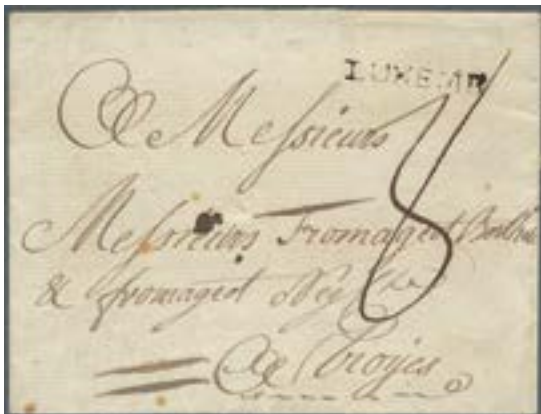 LUXEMB
A Messieurs
8
Messieurs Fromageot
& fromageot
A Troyes